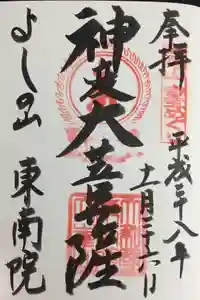 奉拝
平成二十八年
十一月二十六日
神変大菩薩
よしの山
東南院